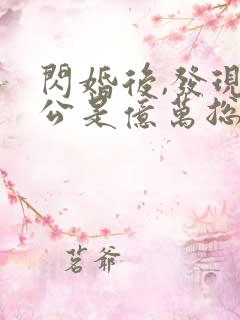 閃婚後,發現
公是億萬總
茗爺